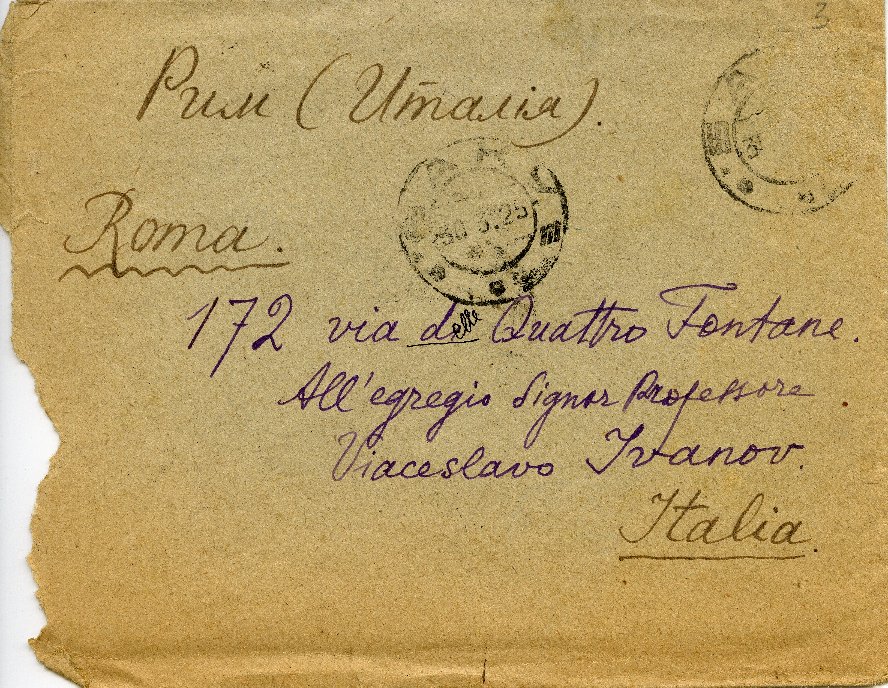 3
Рим (Италія).
Roma.
172 via delle Quattro Fontane.
All'egregio Signor Professore
Viaceslavo Ivanov.
Italia.